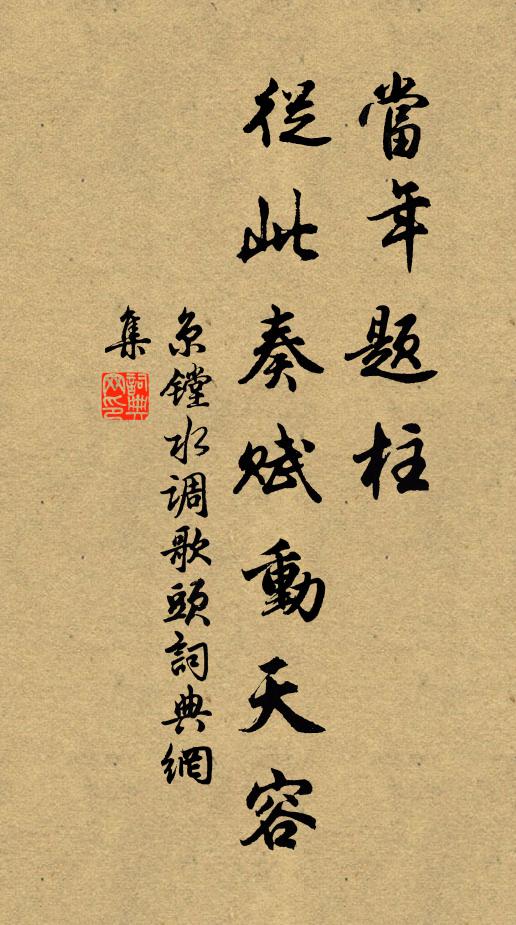 當年題柱
從此奏賦動天容
京鏜水調歌頭詞典網
集
詞典網印